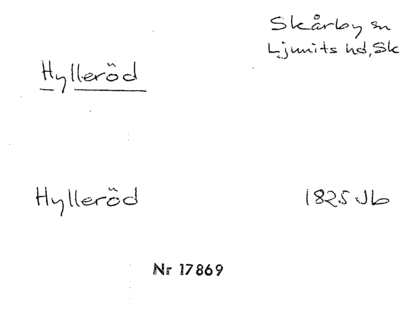 Skårby sn
Ljunits hd, Sk
Hylleröd
Hylleröd 1825 Jb
Nr 17869